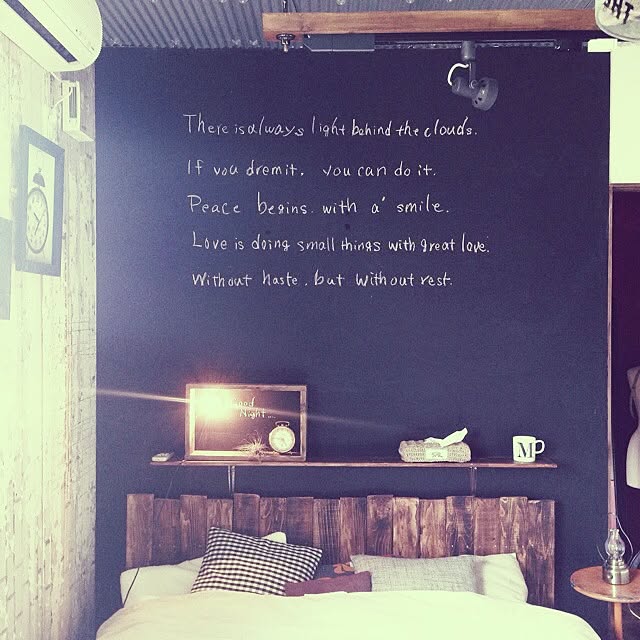 There is always light behind the clouds.
If you dremit. you can do it.
Peace begins with a' smile.
Love is doing small things with great love.
Without haste. but without rest.
Good
Night...
M